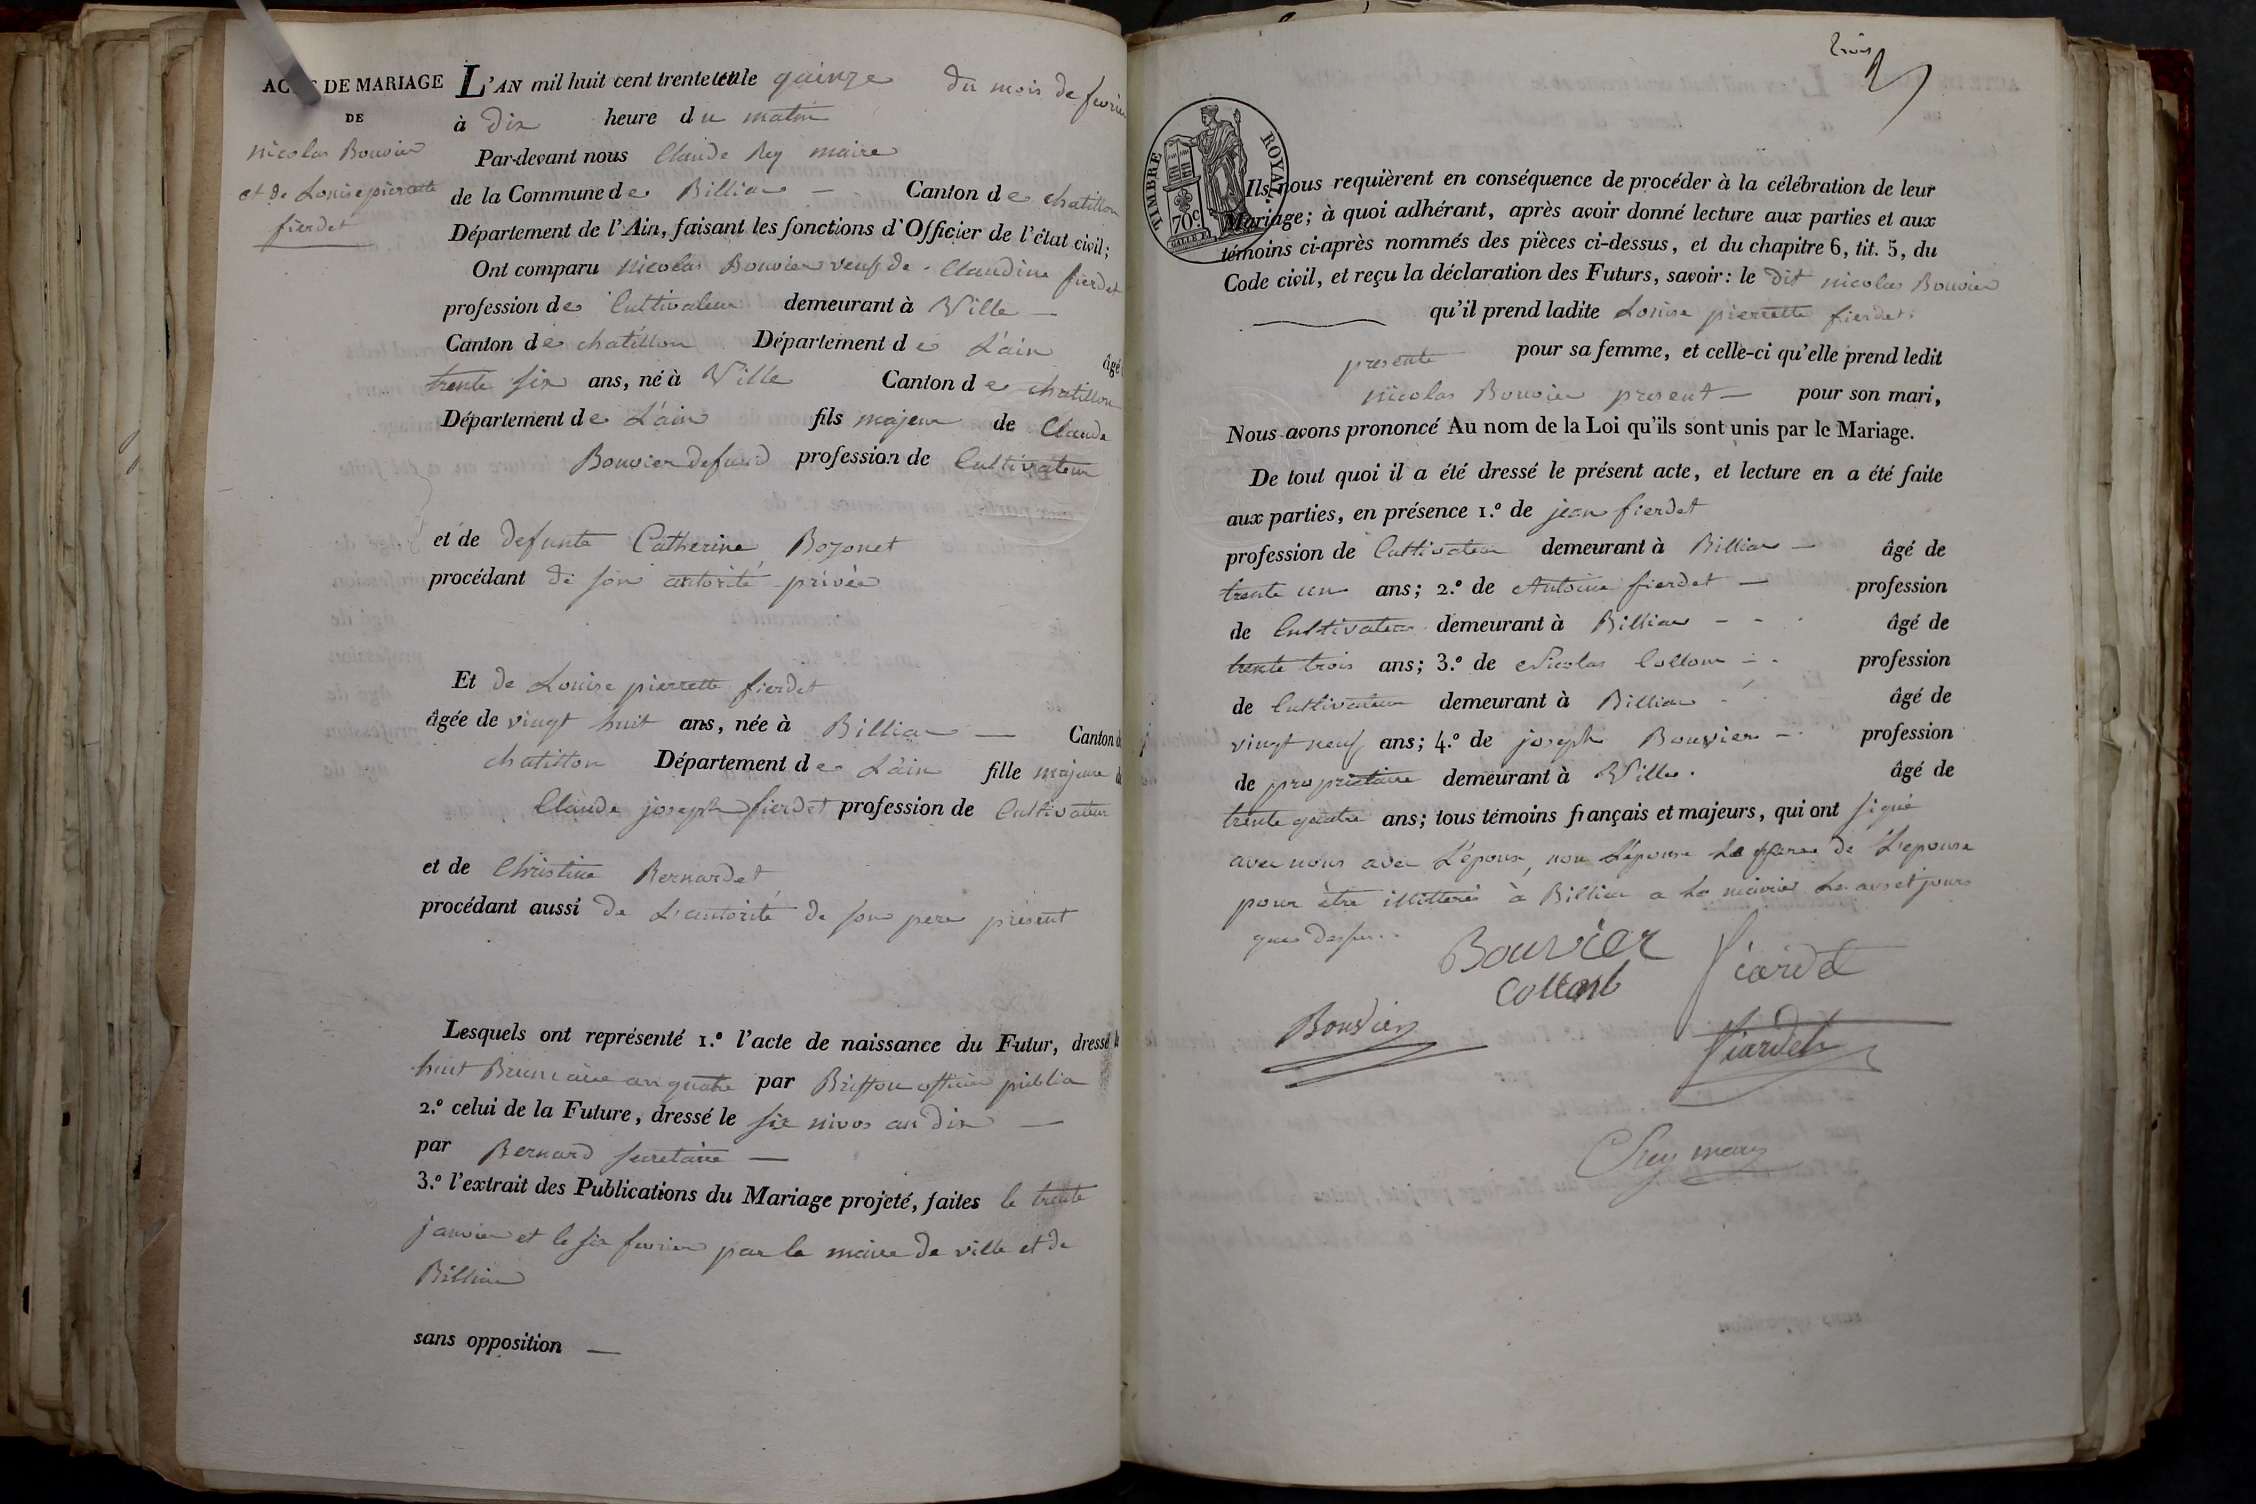 ACTE DE MARIAGE
DE
Nicolas Bouvier
et de Louise pierrette
fierdet
L'AN mil huit cent trente un le quinze du mois de fevrier
à dix heure du matin
Par-devant nous Claude Rey maire
de la Commune de Billiat — Canton de chatillon
Département de l'Ain, faisant les fonctions d'Officier de l'état civil;
Ont comparu nicolas Bouvier veuf de Claudine fierdet
profession de Cultivateur demeurant à Ville —
Canton de chatillon Département de L'ain âgé
trente six ans, né à Ville Canton de chatillon
Département de L'ain fils majeur de Claude
Bouvier defunt profession de Cultivateur
et de defunte Catherine Bozonet
procédant de son autorité privée
Et de Louise pierrette fierdet
âgée de vingt huit ans, née à Billiat — Canton de
chatillon Département de L'ain fille majeure de
Claude joseph fierdet profession de Cultivateur
et de Christine Bernardet
procédant aussi de L'autorité de son pere présent
Lesquels ont représenté 1.º l'acte de naissance du Futur, dressé le
huit Brumaire an quatre par officier public
2.º celui de la Future, dressé le six nivos an dix —
par Bernard secretaire —
3.º l'extrait des Publications du Mariage projeté, faites le trente
janvier et le six fevrier par le maire de ville et de
Billiat
sans opposition —
trois
TIMBRE ROYAL
70 c.
Ils nous requièrent en conséquence de procéder à la célébration de leur
Mariage; à quoi adhérant, après avoir donné lecture aux parties et aux
témoins ci-après nommés des pièces ci-dessus, et du chapitre 6, tit. 5, du
Code civil, et reçu la déclaration des Futurs, savoir: le dit nicolas Bouvier
qu'il prend ladite Louise pierrette fierdet
presente pour sa femme, et celle-ci qu'elle prend ledit
nicolas Bouvier present — pour son mari,
Nous avons prononcé Au nom de la Loi qu'ils sont unis par le Mariage.
De tout quoi il a été dressé le présent acte, et lecture en a été faite
aux parties, en présence 1.º de jean fierdet
profession de Cultivateur demeurant à Billiat — âgé de
trente un ans; 2.º de Antoine fierdet — profession
de Cultivateur demeurant à Billiat — âgé de
trente trois ans; 3.º de Nicolas Collom — profession
de Cultivateur demeurant à Billiat âgé de
vingt neuf ans; 4.º de joseph Bouvier — profession
de proprietaire demeurant à Ville. âgé de
trente quatre ans; tous témoins français et majeurs, qui ont signé
avec nous avec L'époux, non L'épouse Le pere de L'epouse
pour être illitteré à Billiat a La mairie Les an et jours
que dessus.
Bouvier
fiardet
Collomb
Bouvier
fiardet
C Rey maire